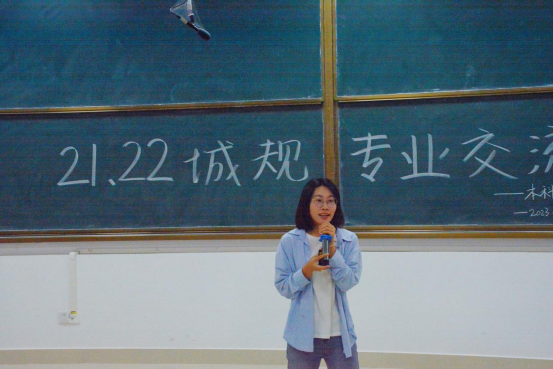 21、22城规 专业交流
—本科
—2023